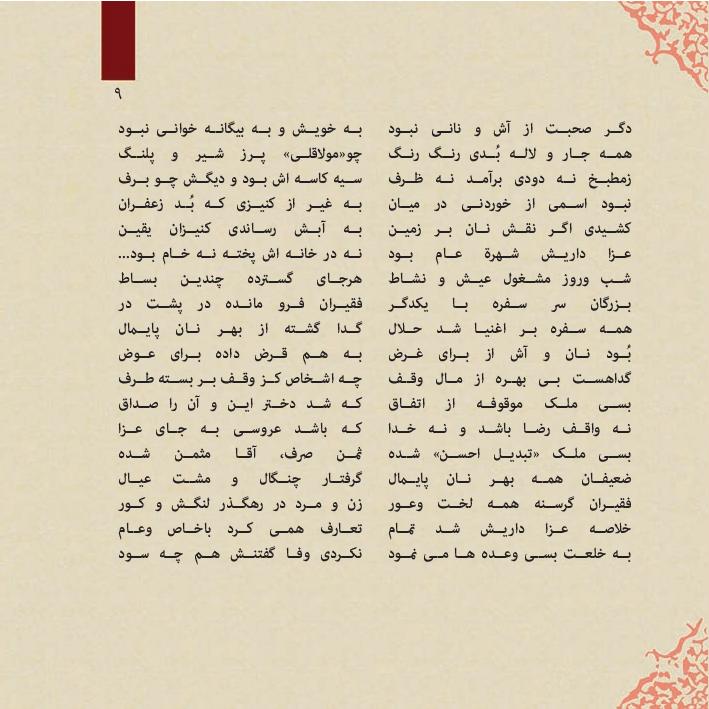 ۹
دگر صحبت از آش و نانی نبود به خویش و به بیگانه خوانی نبود
همه جار و لاله بُدی رنگ رنگ چو«مولاقلی» پرز شیر و پلنگ
زمطبخ نه دودی برآمد نه ظرف سیه کاسه اش بود و دیگش چو برف
نبود اسمی از خوردنی در میان به غیر از کنیزی که بُد زعفران
کشیدی اگر نقش نان بر زمین به آبش رساندی کنیزان یقین
عزا داریش شهرة عام بود نه در خانه اش پخته نه خام بود...
شب وروز مشغول عیش و نشاط هرجای گسترده چندین بساط
بزرگان سر سفره با یکدگر فقیران فرو مانده در پشت در
همه سفره بر اغنیا شد حلال گدا گشته از بهر نان پایمال
بُود نان و آش از برای غرض به هم قرض داده برای عوض
گداهست بی بهره از مال وقف چه اشخاص کز وقف بر بسته طرف
بسی ملک موقوفه از اتفاق که شد دختر این و آن را صداق
نه واقف رضا باشد و نه خدا که باشد عروسی به جای عزا
بسی ملک «تبدیل احسن» شده ثمن صرف، آقا مثمن شده
ضعیفان همه بهر نان پایمال گرفتار چنگال و مشت عیال
فقیران گرسنه همه لخت وعور زن و مرد در رهگذر لنگش و کور
خلاصه عزا داریش شد تمام تعارف همی کرد باخاص وعام
به خلعت بسی وعده ها می نمود نکردی وفا گفتنش هم چه سود